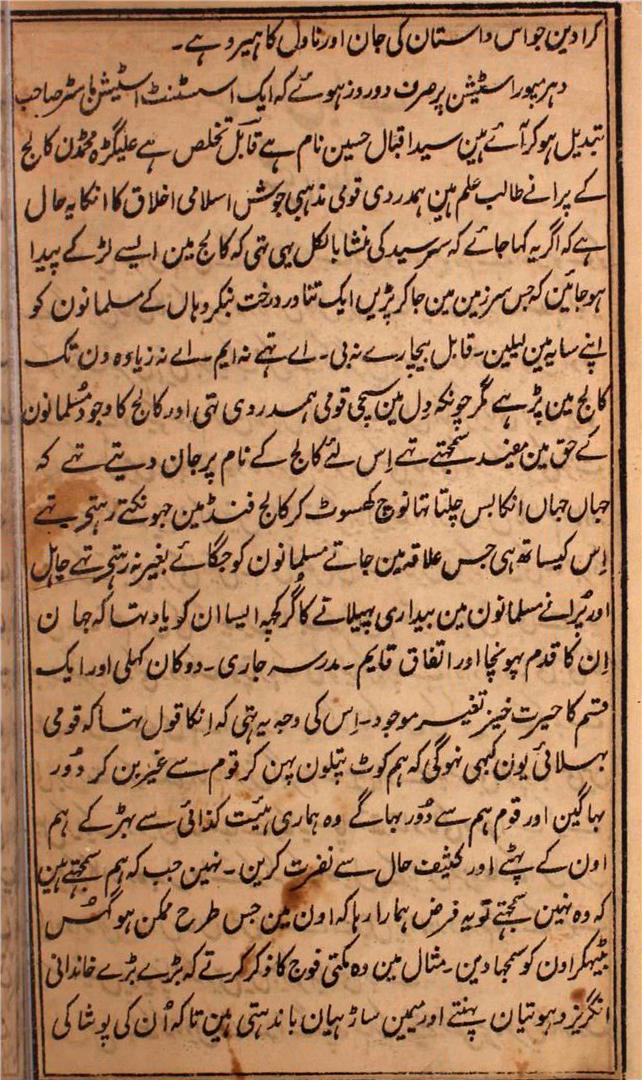 کرا دین جو اس داستان کی جان اور ناول کا ہیرو ہے۔
دہرمپور اسٹیشن پر صرف دو روز ہوئے کہ ایک اسسٹنٹ اسٹیشن ماسٹر صاحب
تبدیل ہو کر آئے ہین سید اقبال حسین نام ہے قابل تخلص ہے علیگڑہ محمڈن کالج
کے پرانے طالب علم ہین ہمدردی قومی مذہبی جوش اسلامی اخلاق کا انکا یہ حال
ہے کہ اگر یہ کہا جائے کہ سر سید کی منشا بالکل یہی تہی کہ کالج مین ایسے لڑکے پیدا
ہو جائین کہ جس سرزمین مین جا کر پڑیں ایک تناور درخت بنکر وہاں کے مسلمانون کو
اپنے سایہ مین لیلین۔ قابل بیچارے نہ بی۔ اے تہے نہ ایم۔ اے نہ زیادہ دن تک
کالج مین پڑہے مگر چونکہ دل مین سچی قومی ہمدردی تہی اور کالج کا وجود مسلمانون
کے حق مین مفید سمجہتے تہے اِس لئے کالج کے نام پر جان دیتے تہے کہ
جہاں جہاں انکا بس چلتا تہا نوچ کھسوٹ کر کالج فنڈ مین جہونکتے رہتی تہے
اِس کیساتھ ہی جس علاقہ مین جاتے مسلمانون کو جگائے بغیر نہ رہتی تہے جاہل
اور پُرانے مسلمانون مین بیداری پہیلانے کا گُر کچہ ایسا ان کو یاد تہا کہ جہا ن
اِن کا قدم پہونچا اور اتفاق قایم۔ مدرسہ جاری۔ دوکان کہلی اور ایک
قسم کا حیرت خیز تغیر موجود۔ اِس کی وجہ یہ تہی کہ اِنکا قول تہا کہ قومی
بہلائی یون کبہی نہوگی کہ ہم کوٹ پتلون پہن کر قوم سے غیر بن کر دُور
بہاگین اور قوم ہم سے دُور بہاگے وہ ہماری ہئیت کذائی سے بہڑکے ہم
اون کے پہٹے اور کثیف حال سے نفرت کرین۔ نہین جب کہ ہم سمجہتے ہین
کہ وہ نہین سمجہتے تو یہ فرض ہمارا رہا کہ اون مین جس طرح ممکن ہو گُہس
بیٹہکر اون کو سمجہا دین۔ مثال مین وہ مکتی فوج کا ذکر کرتے کہ بڑے بڑے خاندانی
انگریز دہوتیان پہنتے اور میمین ساڑہیان باندہتی ہین تاکہ اُن کی پوشاکی